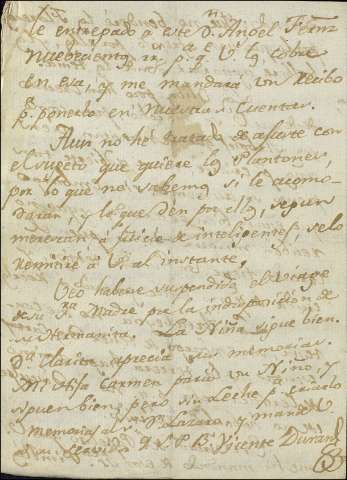 le entregado a este Dn. Angel Fernz
Nuebecientos rs. pa. qe. Vd. los cobre
en esa, y me mandara un Recibo
pa. ponerlo en Nuestras Cuentas.
Aun no hé tratado de ajuste con
el sugeto que quiere los Plantones,
por lo que no sabemos si le acomo-
daran, y lo que den por ellos, segun
merezcan á juicio de inteligentes, se lo
remitiré á Vd. al instante.
Veo haberse suspendido el Viage
de su Sra. Madre por la indisposicion de
su Hermanita. La Niña sigue bien.
Da. Clarita aprecia sus memorias.
Mi hija Carmen parió un Niño, y
siguen bien, pero sin Leche pa. criarlo
memorias al Sr. Dn. Lazaro, y mande
á su servidor Q. S. M. B. Vicente Duran